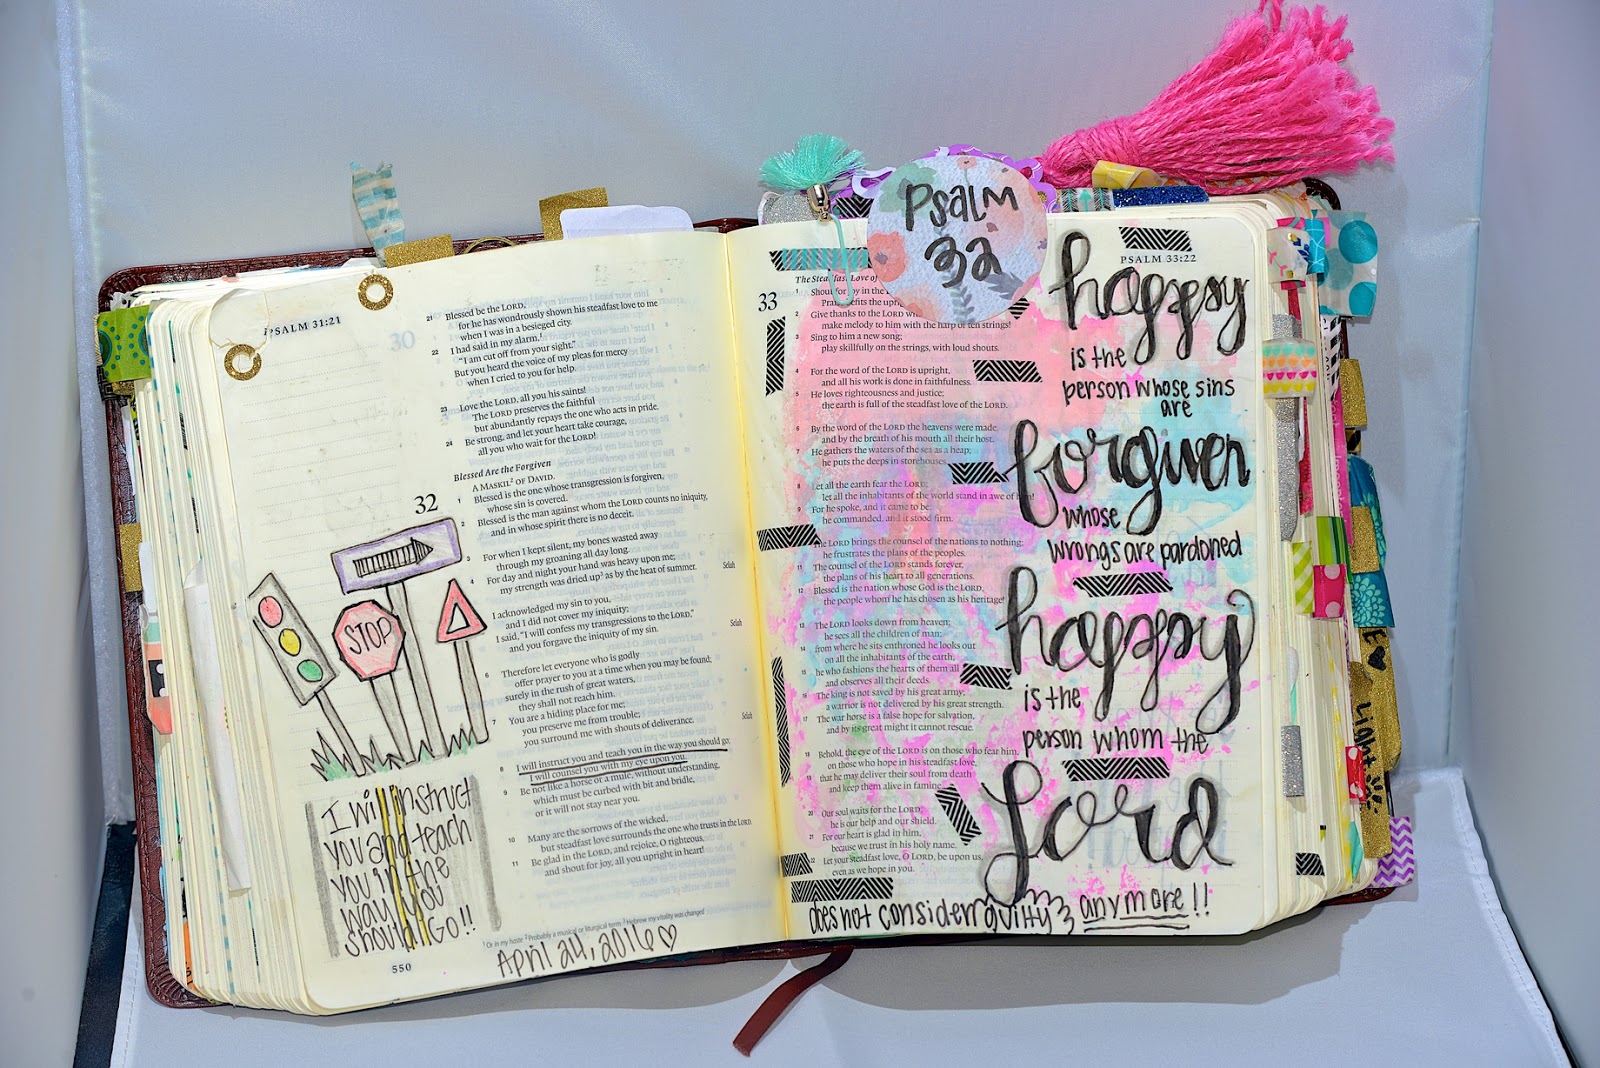 PSALM 31:21
21 Blessed be the LORD,
for he has wondrously shown his steadfast love to me
when I was in a besieged city.
22 I had said in my alarm,¹
"I am cut off from your sight."
But you heard the voice of my pleas for mercy
when I cried to you for help.
23 Love the LORD, all you his saints!
The LORD preserves the faithful
but abundantly repays the one who acts in pride.
24 Be strong, and let your heart take courage,
all you who wait for the LORD!
Blessed Are the Forgiven
32 A MASKIL² OF DAVID.
1 Blessed is the one whose transgression is forgiven,
whose sin is covered.
2 Blessed is the man against whom the LORD counts no iniquity,
and in whose spirit there is no deceit.
3 For when I kept silent, my bones wasted away
through my groaning all day long.
4 For day and night your hand was heavy upon me;
my strength was dried up³ as by the heat of summer. Selah
I acknowledged my sin to you,
and I did not cover my iniquity;
I said, "I will confess my transgressions to the LORD,"
and you forgave the iniquity of my sin. Selah
6 Therefore let everyone who is godly
offer prayer to you at a time when you may be found;
surely in the rush of great waters,
they shall not reach him.
7 You are a hiding place for me;
you preserve me from trouble;
you surround me with shouts of deliverance. Selah
8 I will instruct you and teach you in the way you should go;
I will counsel you with my eye upon you.
9 Be not like a horse or a mule, without understanding,
which must be curbed with bit and bridle,
or it will not stay near you.
10 Many are the sorrows of the wicked,
but steadfast love surrounds the one who trusts in the LORD.
11 Be glad in the LORD, and rejoice, O righteous,
and shout for joy, all you upright in heart!
¹ Or in my haste ² Probably a musical or liturgical term ³ Hebrew my vitality was changed
550
STOP
I will instruct
you and teach
you in the
way you
should GO!!
April 24, 2016
Psalm
32
PSALM 33:22
The Steadfast Love of
33 Shout for joy in the
2 Give thanks to the LORD
make melody to him with the harp of ten strings!
3 Sing to him a new song;
play skillfully on the strings, with loud shouts.
4 For the word of the LORD is upright,
and all his work is done in faithfulness.
5 He loves righteousness and justice;
the earth is full of the steadfast love of the LORD.
6 By the word of the LORD the heavens were made,
and by the breath of his mouth all their host.
7 He gathers the waters of the sea as a heap;
he puts the deeps in storehouses
8 Let all the earth fear the LORD;
let all the inhabitants of the world stand in awe of him!
9 For he spoke, and it came to be;
he commanded, and it stood firm.
The LORD brings the counsel of the nations to nothing;
he frustrates the plans of the peoples.
11 The counsel of the LORD stands forever,
the plans of his heart to all generations.
12 Blessed is the nation whose God is the LORD,
the people whom he has chosen as his heritage!
13 The LORD looks down from heaven;
he sees all the children of man;
14 from where he sits enthroned he looks out
on all the inhabitants of the earth,
15 he who fashions the hearts of them all
and observes all their deeds.
16 The king is not saved by his great army;
a warrior is not delivered by his great strength.
17 The war horse is a false hope for salvation,
and by its great might it cannot rescue.
18 Behold, the eye of the LORD is on those who fear him,
on those who hope in his steadfast love,
19 that he may deliver their soul from death
and keep them alive in famine
20 Our soul waits for the LORD;
he is our help and our shield.
21 For our heart is glad in him,
because we trust in his holy name.
22 Let your steadfast love, O LORD, be upon us,
even as we hope in you.
happy
is the
person whose sins
are
forgiven
whose
wrongs are pardoned
happy
is the
person whom the
Lord
does not consider guilty
anymore!!
Light